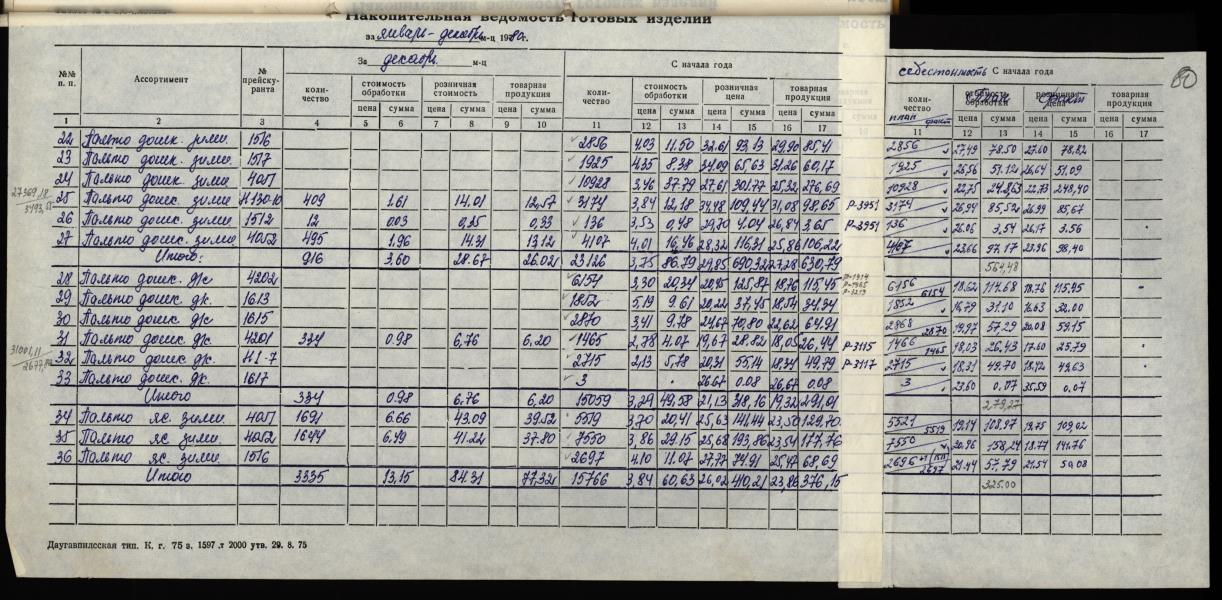 Накопительная ведомость готовых изделий
за январь - декабрь м-ц 1980г.
За декабрь м-ц С начала года себестоимость С начала года 80
№№ п. п. Ассортимент № прейску-ранта коли-чество стоимость обработки розничная стоимость товарная продукция коли-чество стоимость обработки розничная цена товарная продукция коли-чество план факт товарная продукция
цена сумма цена сумма цена сумма цена сумма цена сумма цена сумма цена сумма цена сумма цена сумма
1 2 3 4 5 6 7 8 9 10 11 12 13 14 15 16 17 11 12 13 14 15 16 17
22 Пальто дошк. зимн. 1516 2856 4,03 11.50 32.61 93,13 29,90 85,41 2856 27,49 78.50 27.60 78,82
23 Пальто дошк. зимн. 1517 1925 4.35 8.38 34.09 65,63 31,26 60,17 1925 26,56 51.12 26,64 51,09
24 Пальто дошк. зимн. 4051 10928 3,46 37.79 27,61 301.77 25,32 276,69 10928 22,75 248,63 22,73 248,40
25 Пальто дошк. зимн. Н130-10 409 1.61 14,01 12,57 3174 3,84 12,18 34,48 109,44 31,08 98,65 Р-3951 3174 26,94 85,52 26,99 85,67
26 Пальто дошк. зимн. 1512 12 0.03 0,35 0,33 136 3,53 0,48 29,70 4.04 26,84 3,65 Р-3951 136 26.06 3,54 26.17 3.56
27 Пальто дошк. зимн. 4052 495 1.96 14.31 13.12 4107 4,01 16,46 28,32 116,31 25,86 106,22 4107 23,66 97,17 23.96 98,40
Итого: 916 3.60 28.67 26.02 23126 3,75 86.79 29,85 690,32 27,28 630,79 564,48
28 Пальто дошк. д/с 4202 6154 3,30 20,34 20,45 125,87 18,76 115,45 6156 6154 18,62 114,68 18.76 115,45
29 Пальто дошк. дк. 1613 1852 5,19 9.61 20,22 37.45 18.54 34,34 1852 16,79 31.10 16,63 32,00
30 Пальто дошк. д/с 1615 2870 3,41 9.78 24,67 70,80 22,62 64.91 2868 2870 19,97 57,29 20,08 59,15
31 Пальто дошк. дк. 4201 334 0.98 6,76 6,20 1465 2,78 4.07 19,67 28,82 18,05 26,44 Р-3115 1466 1465 18,03 26,43 17.60 25.79
32 Пальто дошк. дк. Н.1-7 2715 2,13 5,78 20,31 55,14 18,34 49,79 Р-3117 2715 18,31 49,70 18,42 49,63
33 Пальто дошк. дк. 1617 3 26.67 0.08 26,67 0.08 3 23.60 0.07 35.59 0,07
Итого 334 0.98 6,76 6.20 15059 3,29 49,58 21,13 318,16 19,32 291,01 279,27
34 Пальто яс. зимн. 4051 1691 6.66 43.09 39.52 5519 3,70 20,41 25,63 141,44 23,50 129,70 5521 5519 19.14 108,97 19,75 109,02
35 Пальто яс. зимн. 4052 1644 6.49 41.22 37.80 7550 3,86 29,15 25,68 193,86 23,54 177,76 7550 20,96 158,24 18.77 141.76
36 Пальто яс. зимн. 1516 2697 4.10 11.07 27,77 74.91 25,47 68,69 2696 2697 21.44 57.79 21.54 58,08
Итого 3335 13,15 84.31 77,32 15766 3,84 60,63 26,02 410,21 23,86 376,15 325.00
Даугавпилсская тип. К. г. 75 з. 1597 .т 2000 утв. 29. 8. 75